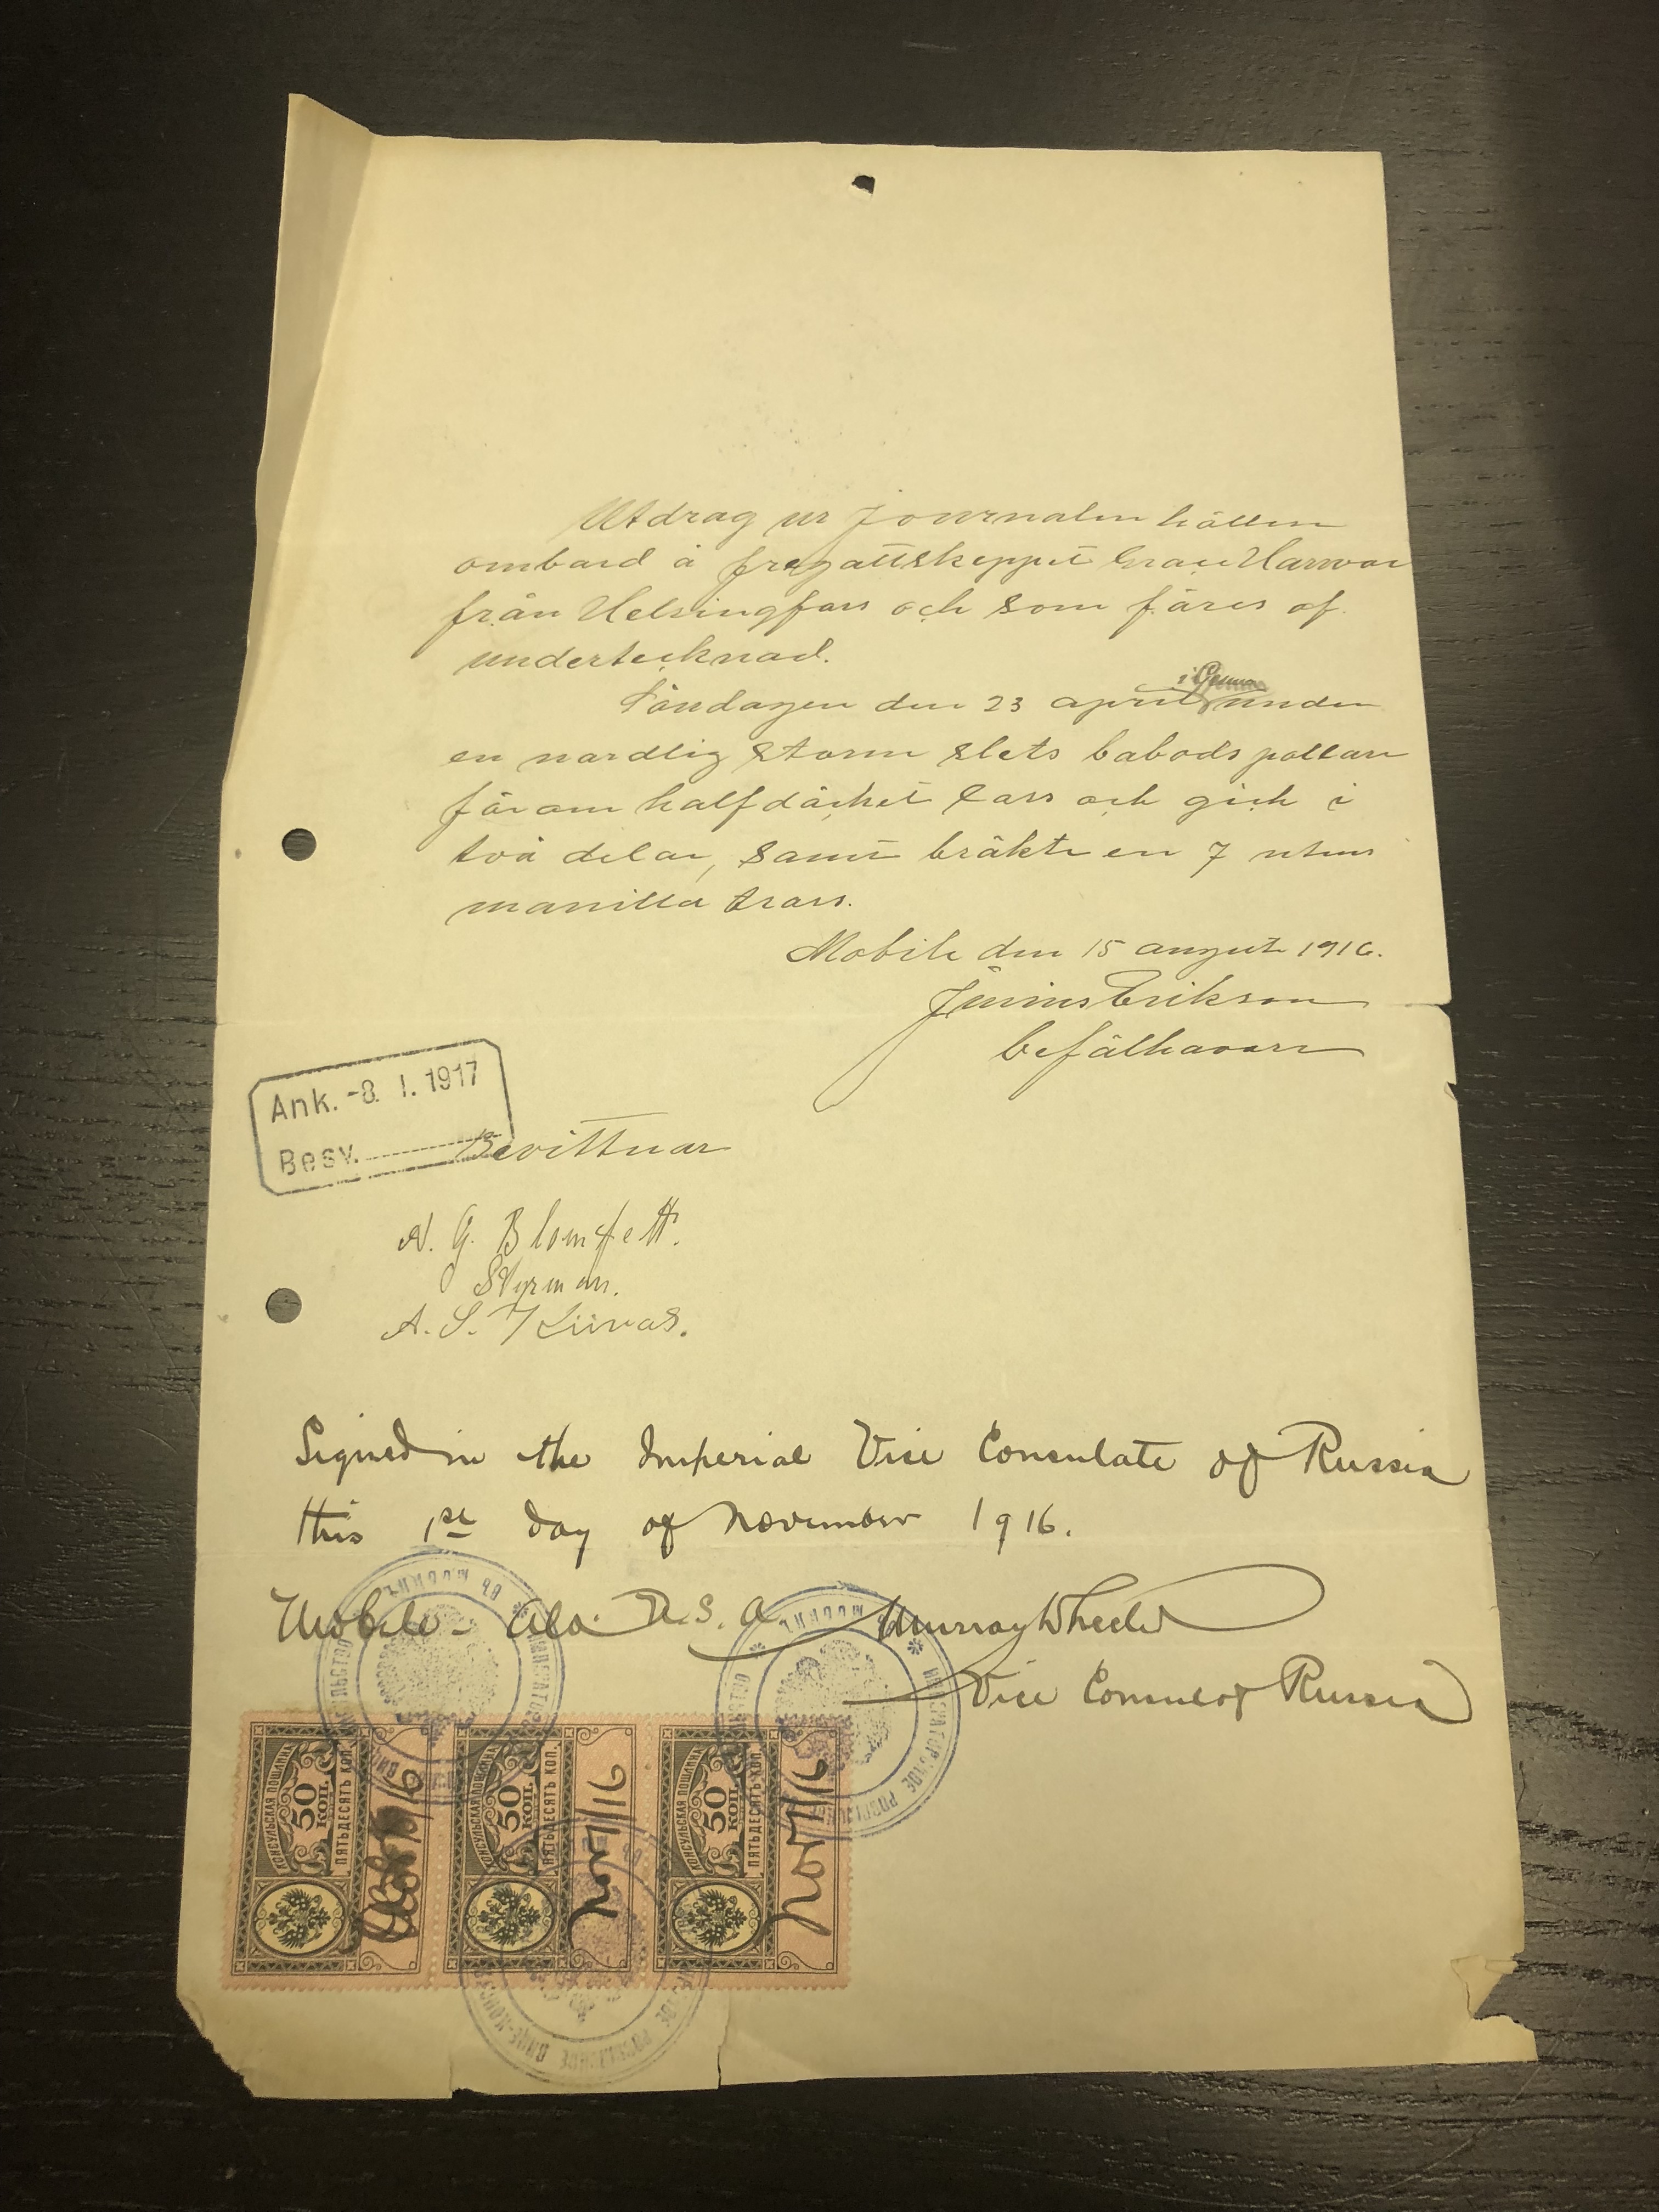 Utdrag ur Journalen hållen
ombord å fregattskeppet Grace Harwar
från Helsingfors och som föres af
undertecknad.
i Genua
Söndagen den 23 april under
en nordlig storm slets babods pollare
för om halfdäcket loss och gick i
två delar, samt bräkte en 7 tums
manilla tross.
Mobile den 15 august 1916.
Junius Erikson
befälhavare
Ank. -8. I. 1917
Besv.
Bevittnar
N. G. Blomfelt.
Styrman.
A. S.
Signed in the Imperial Vice Consulate of Russia
this 1st day of November 1916.
Mobile - Ala. U.S.A. Murray Wheeler
Vice Consul of Russia
КОНСУЛЬСКАЯ ПОШЛИНА
50
КОП.
ПЯТЬДЕСЯТЪ КОП.
КОНСУЛЬСКАЯ ПОШЛИНА
50
КОП.
ПЯТЬДЕСЯТЪ КОП.
Nov 1/16
КОНСУЛЬСКАЯ ПОШЛИНА
50
КОП.
ПЯТЬДЕСЯТЪ КОП.
Nov 1/16